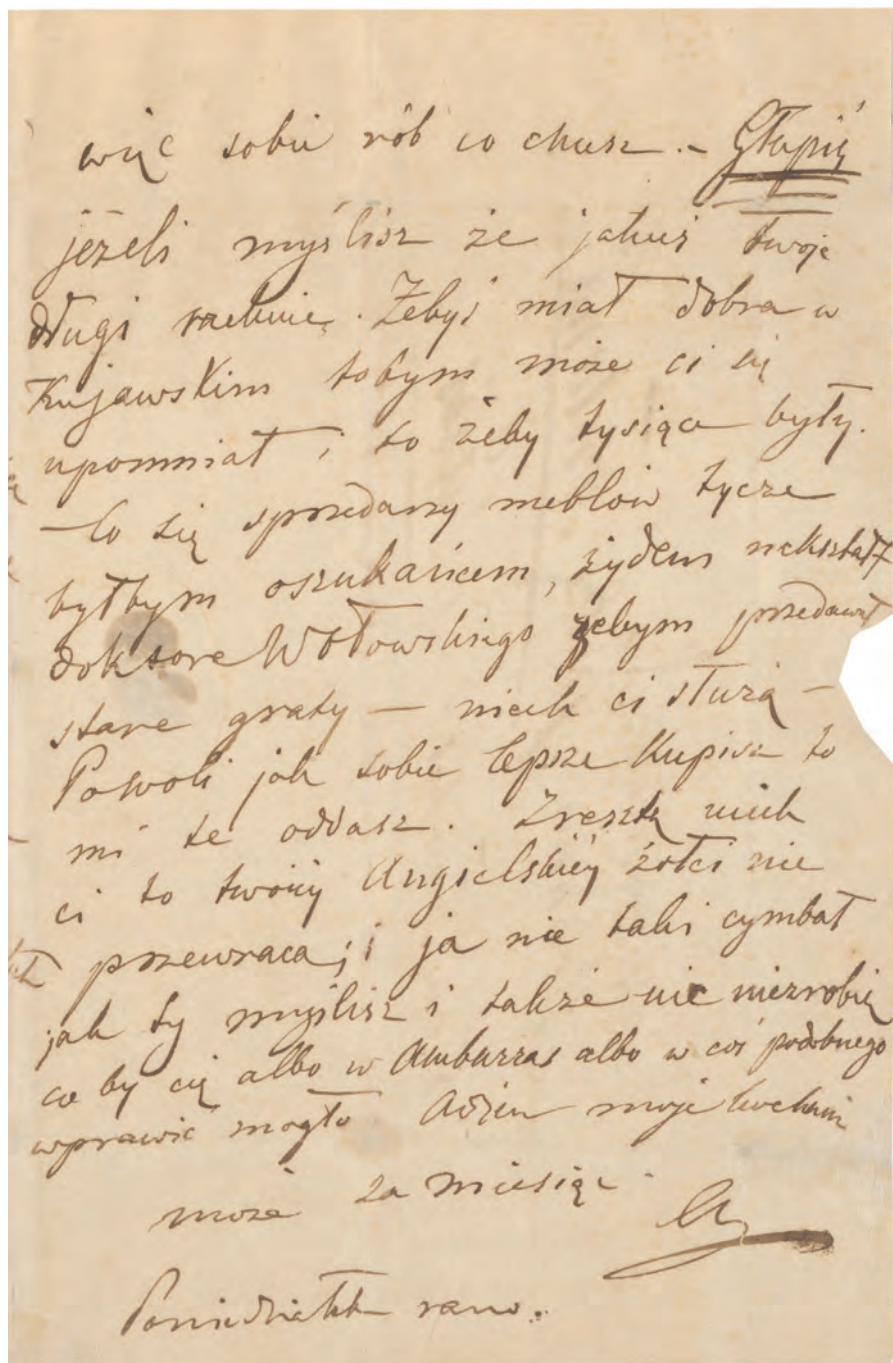 więc sobie rób co chcesz. – Głupiś
jeżeli myślisz że jakieś twoje
długi rachuię. Żebyś miał dobra w
Kujawskim tobym może ci się
upomniał i to żeby tysiąca były.
– Co się sprzedarzy meblów tycze
byłbym oszukańcem, żydem nakształt
doktora Wołowskiego żebym przedawał
stare graty – niech ci służą –
Powoli jak sobie lepsze Kupisz to
mi te oddasz. Zresztą niech
ci to twoiey Angielskiéy żółci nie
przewraca; i ja nie taki cymbał
jak ty myślisz i także nic niezrobię
co by cię albo w Ambarras albo w coś podobnego
wprawić mogło Adieu moje kochanie
może za miesiąc.
A
Poniedziałek rano.